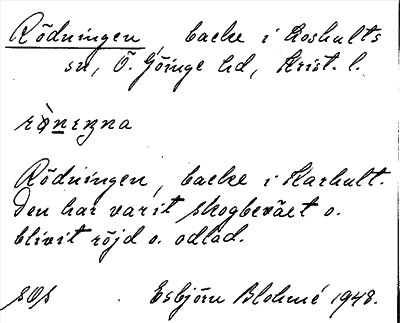 Rödningen, backe i Loshults
sn, Ö. Göinge hd, Krist. l.
Rödningen, backe i Harhult.
Den har varit skogbeväxt o.
blivit röjd o. odlad.
Esbjörn Blohmé 1948.